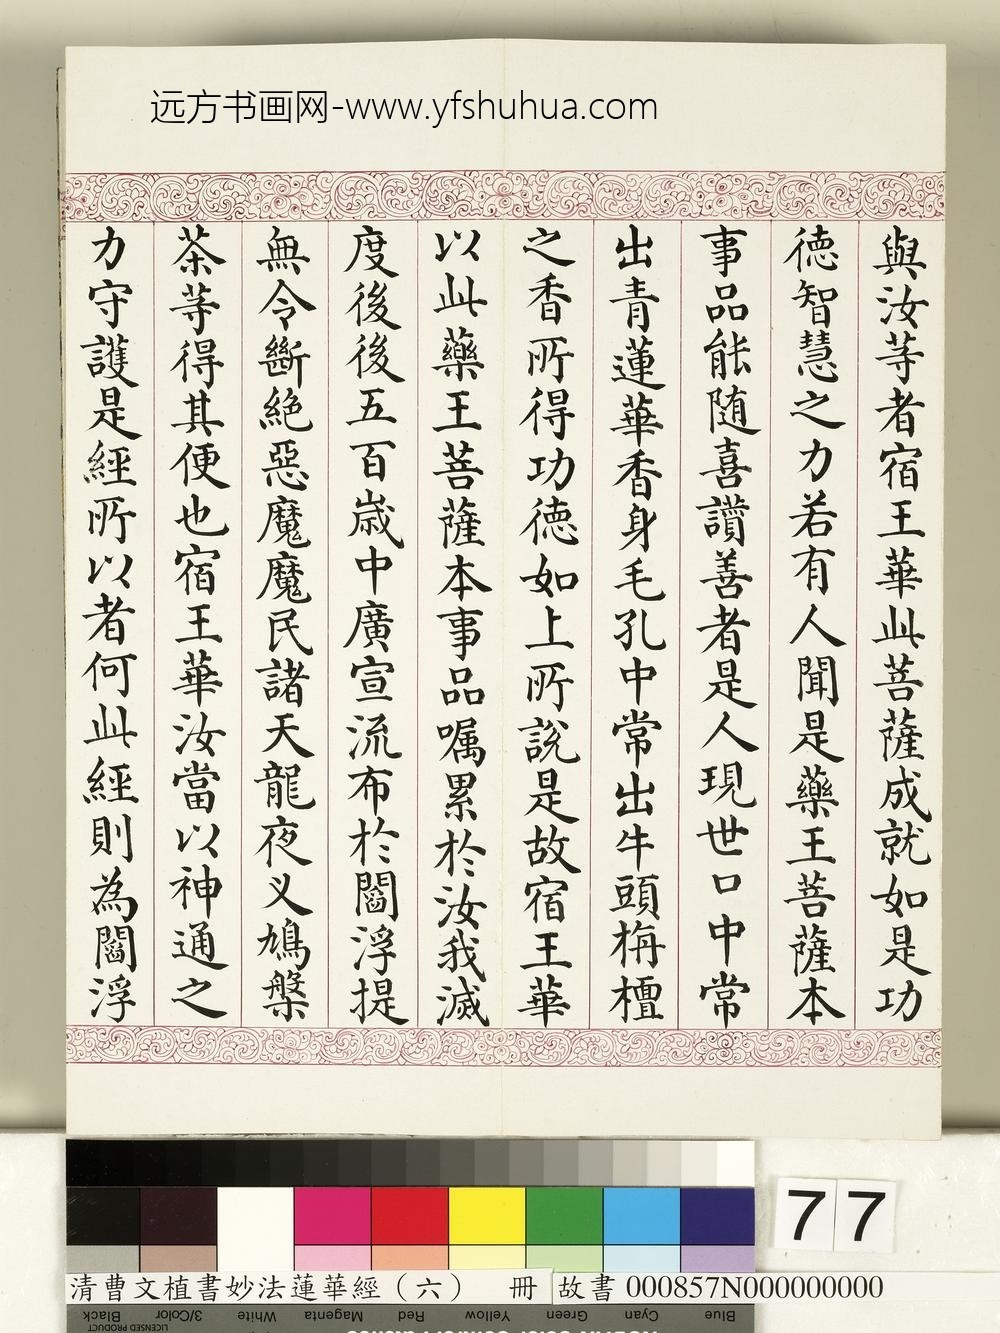 远方书画网-www.yfshuhua.com
與汝等者宿王華此菩薩成就如是功
德智慧之力若有人聞是藥王菩薩本
事品能随喜讚善者是人現世口中常
出青蓮華香身毛孔中常出牛頭栴檀
之香所得功德如上所說是故宿王華
以此藥王菩薩本事品嘱累於汝我滅
度後後五百歳中廣宣流布於閻浮提
無令斷絕惡魔魔民諸天龍夜义鳩槃
茶等得其便也宿王華汝當以神通之
力守護是經所以者何此經則為閻浮
77
清曹文植書妙法蓮華經（六） 冊 故書 000857N000000000
Blue Cyan Green Yellow Red Magenta White 3/Color Black
LICENSED PRODUCT